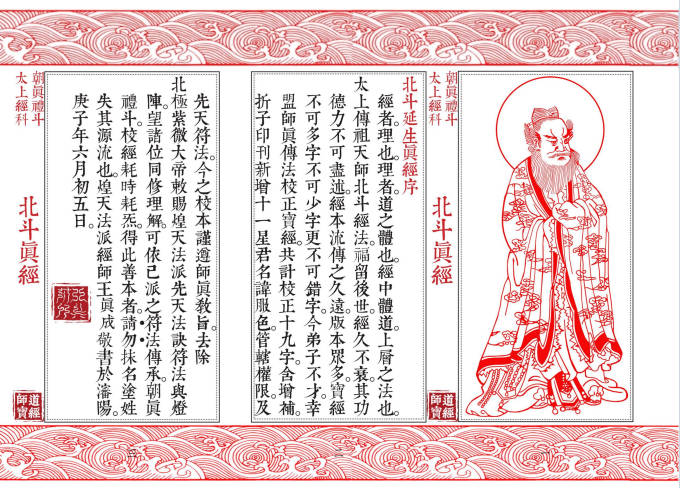 朝眞禮斗
太上經科
北斗眞經
道經師寶
北斗延生眞經序
經者理也。理者。道之體也。經中體道。上層之法也。
太上傳祖天師北斗經法。福留後世。經久不衰。其功
德力不可盡述。經本流傳之久遠。版本眾多。寶經
不可多字。不可少字。更不可錯字。今弟子不才。幸
盟師眞傳法。校正寶經。共計校正十九字。含增補。
折子印刊新增十一星君名諱。服色。管轄權限。及
朝眞禮斗
太上經科
北斗眞經
道經師寶
先天符法。今之校本謹遵師眞教旨。去除
北極紫微大帝敕賜煌天法派先天法訣符法與燈
陣。望諸位同修理解。可依己派之符法傳承。朝眞
禮斗。校經耗時耗炁。得此善本者。請勿抹名塗姓
失其源流也。煌天法派經師王眞成敬書於瀋陽。
庚子年六月初五日。